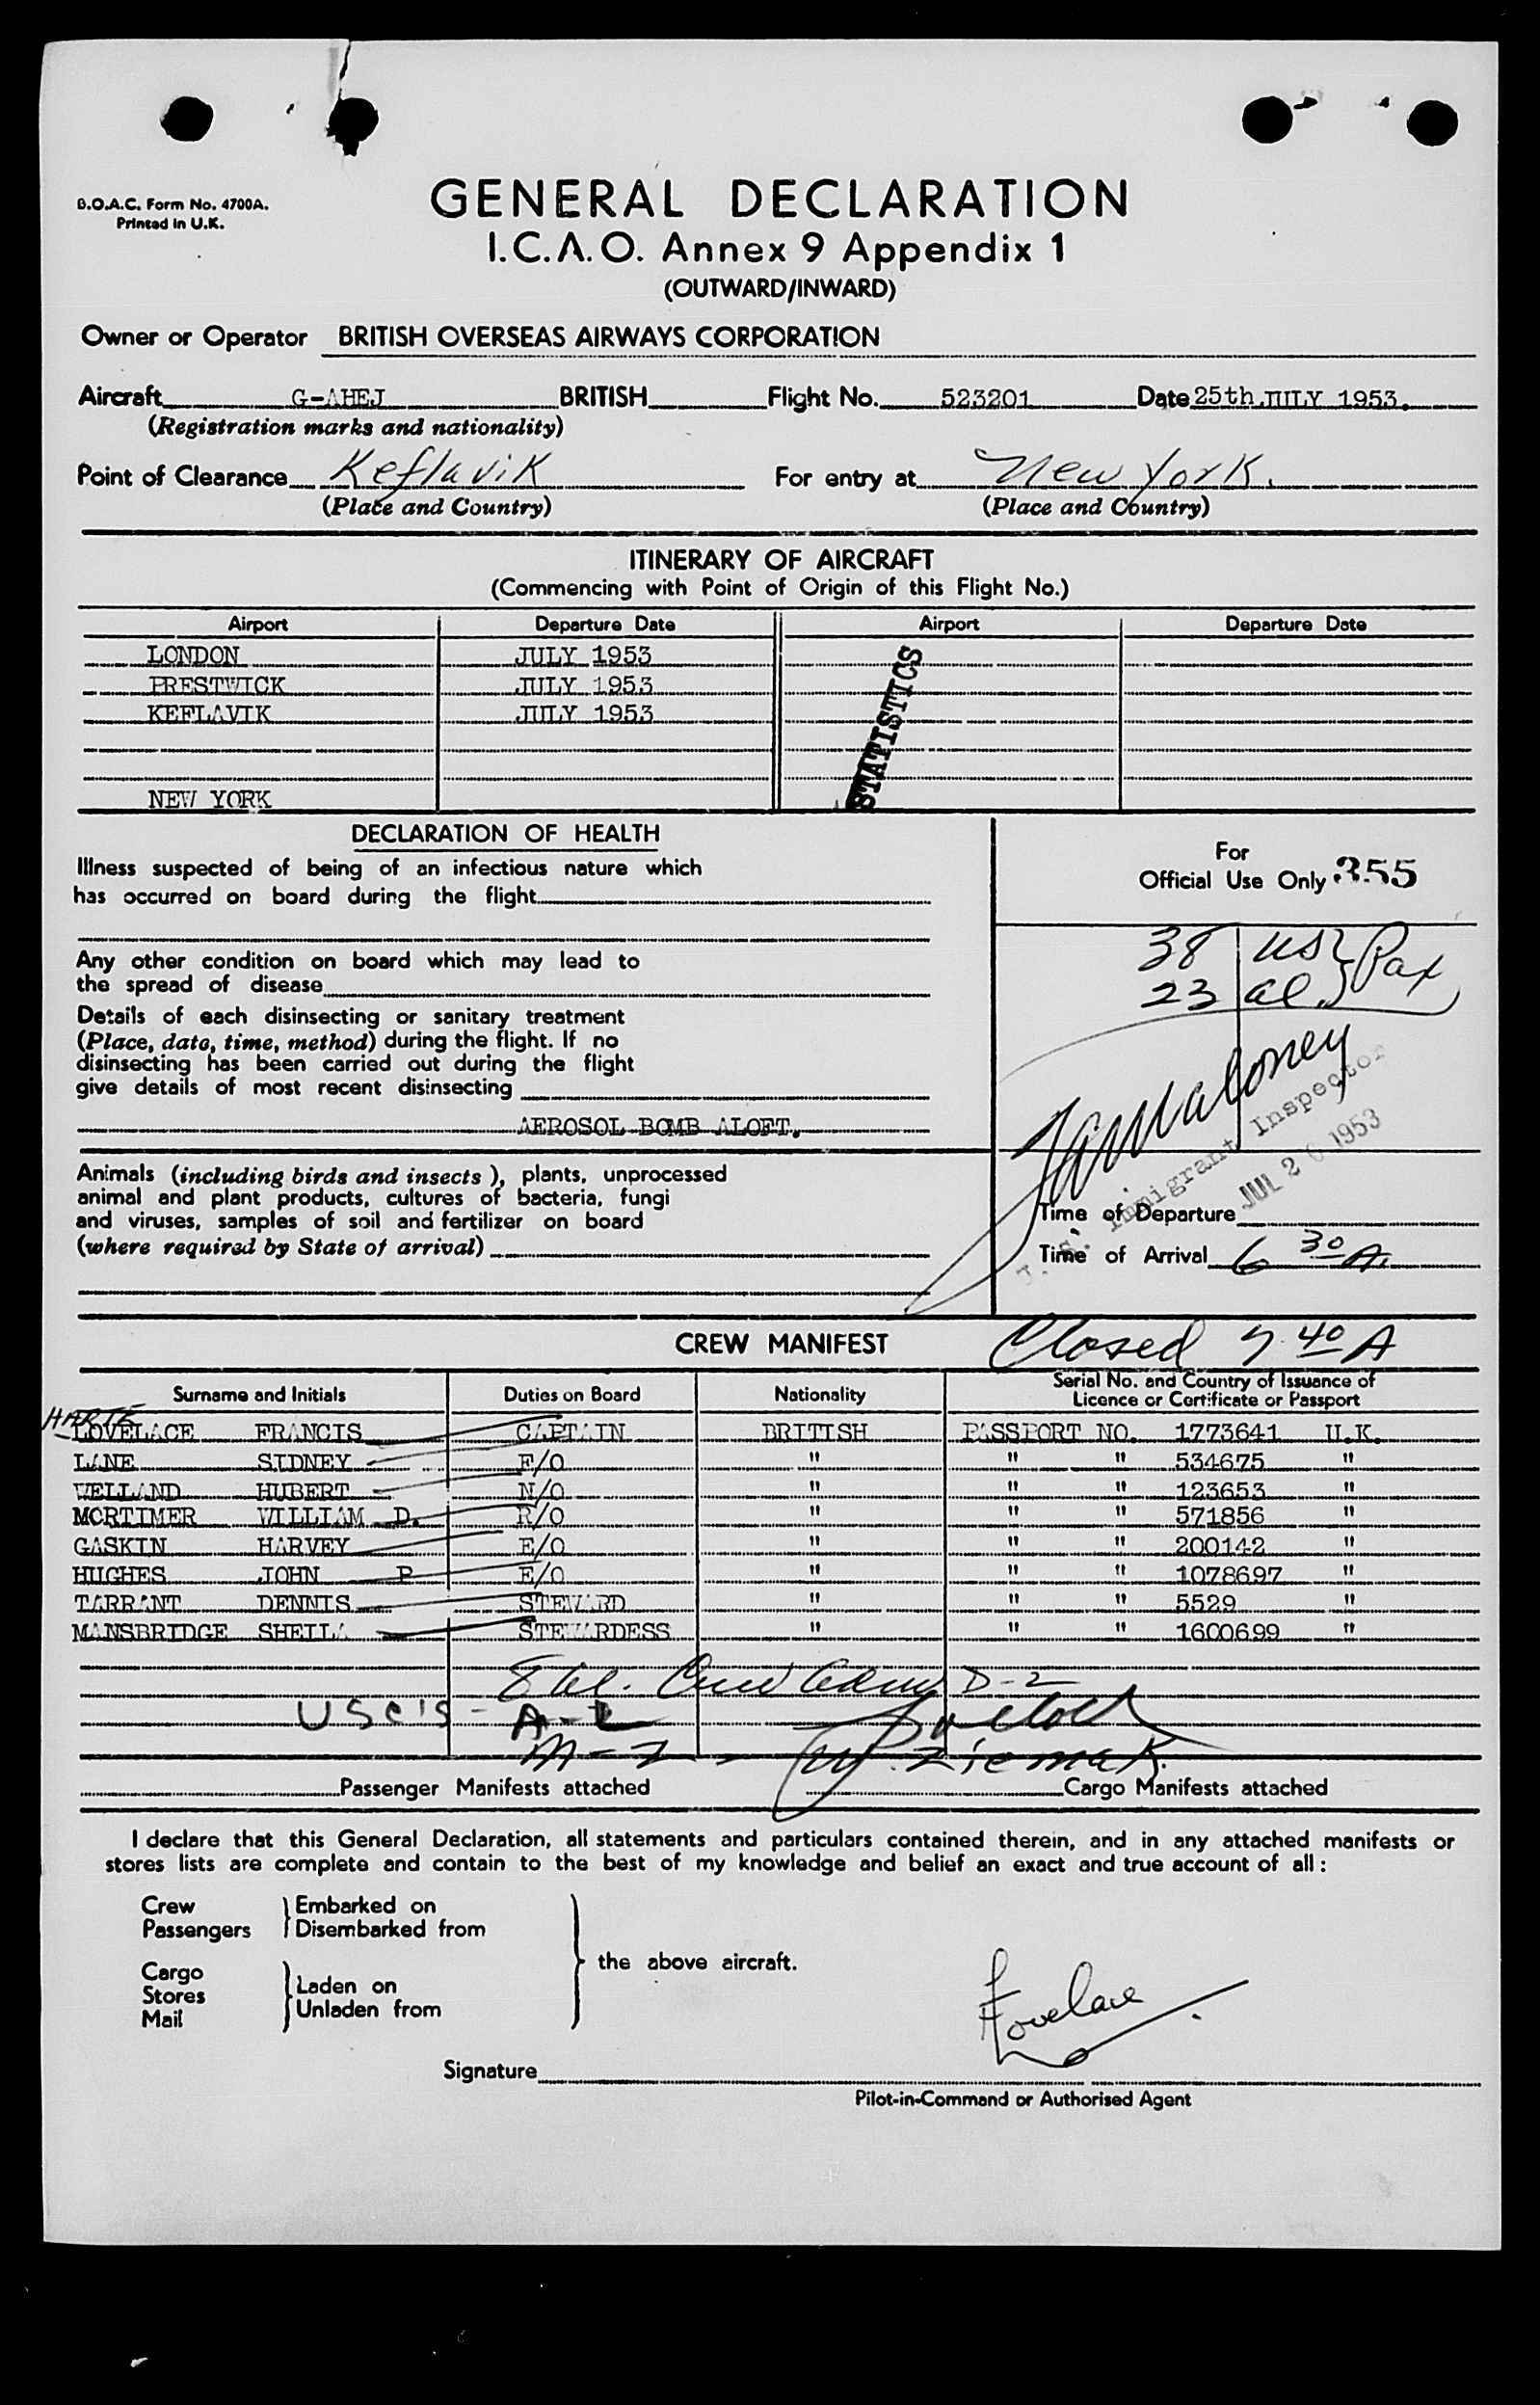 B.O.A.C. Form No. 4700A.
Printed in U.K.
GENERAL DECLARATION
I.C.A.O. Annex 9 Appendix 1
(OUTWARD/INWARD)
Owner or Operator BRITISH OVERSEAS AIRWAYS CORPORATION
Aircraft G-AHEJ BRITISH Flight No. 523201 Date 25th JULY 1953.
(Registration marks and nationality)
Point of Clearance Keflavik For entry at New York.
(Place and Country) (Place and Country)
ITINERARY OF AIRCRAFT
(Commencing with Point of Origin of this Flight No.)
Airport Departure Date Airport Departure Date
LONDON JULY 1953
PRESTWICK JULY 1953
KEFLAVIK JULY 1953
NEW YORK
STATISTICS
DECLARATION OF HEALTH
Illness suspected of being of an infectious nature which
has occurred on board during the flight
Any other condition on board which may lead to
the spread of disease
Details of each disinsecting or sanitary treatment
(Place, date, time, method) during the flight. If no
disinsecting has been carried out during the flight
give details of most recent disinsecting
AEROSOL BOMB ALOFT.
Animals (including birds and insects), plants, unprocessed
animal and plant products, cultures of bacteria, fungi
and viruses, samples of soil and fertilizer on board
(where required by State of arrival)
For
Official Use Only 355
38 US } Pax
23 al.
Maloney
U. S. Immigrant Inspector
JUL 26 1953
Time of Departure
Time of Arrival 6 30 A.
CREW MANIFEST Closed 7 40 A
Surname and Initials Duties on Board Nationality Serial No. and Country of Issuance of
Licence or Certificate or Passport
HARTE
LOVELACE FRANCIS CAPTAIN BRITISH PASSPORT NO. 1773641 U.K.
LANE SIDNEY F/O " " " 534675 "
WELLAND HUBERT N/O " " " 123653 "
MORTIMER WILLIAM D. R/O " " " 571856 "
GASKIN HARVEY E/O " " " 200142 "
HUGHES JOHN P E/O " " " 1078697 "
TARRANT DENNIS STEWARD " " " 5529 "
MANSBRIDGE SHEILA STEWARDESS " " " 1600699 "
8 al. Crew adm D-2
USC's - A-2
M-2 - Ziemak.
Passenger Manifests attached Cargo Manifests attached
I declare that this General Declaration, all statements and particulars contained therein, and in any attached manifests or
stores lists are complete and contain to the best of my knowledge and belief an exact and true account of all :
Crew
Passengers
Embarked on
Disembarked from
Cargo
Stores
Mail
Laden on
Unladen from
the above aircraft.
Lovelace
Signature
Pilot-in-Command or Authorised Agent